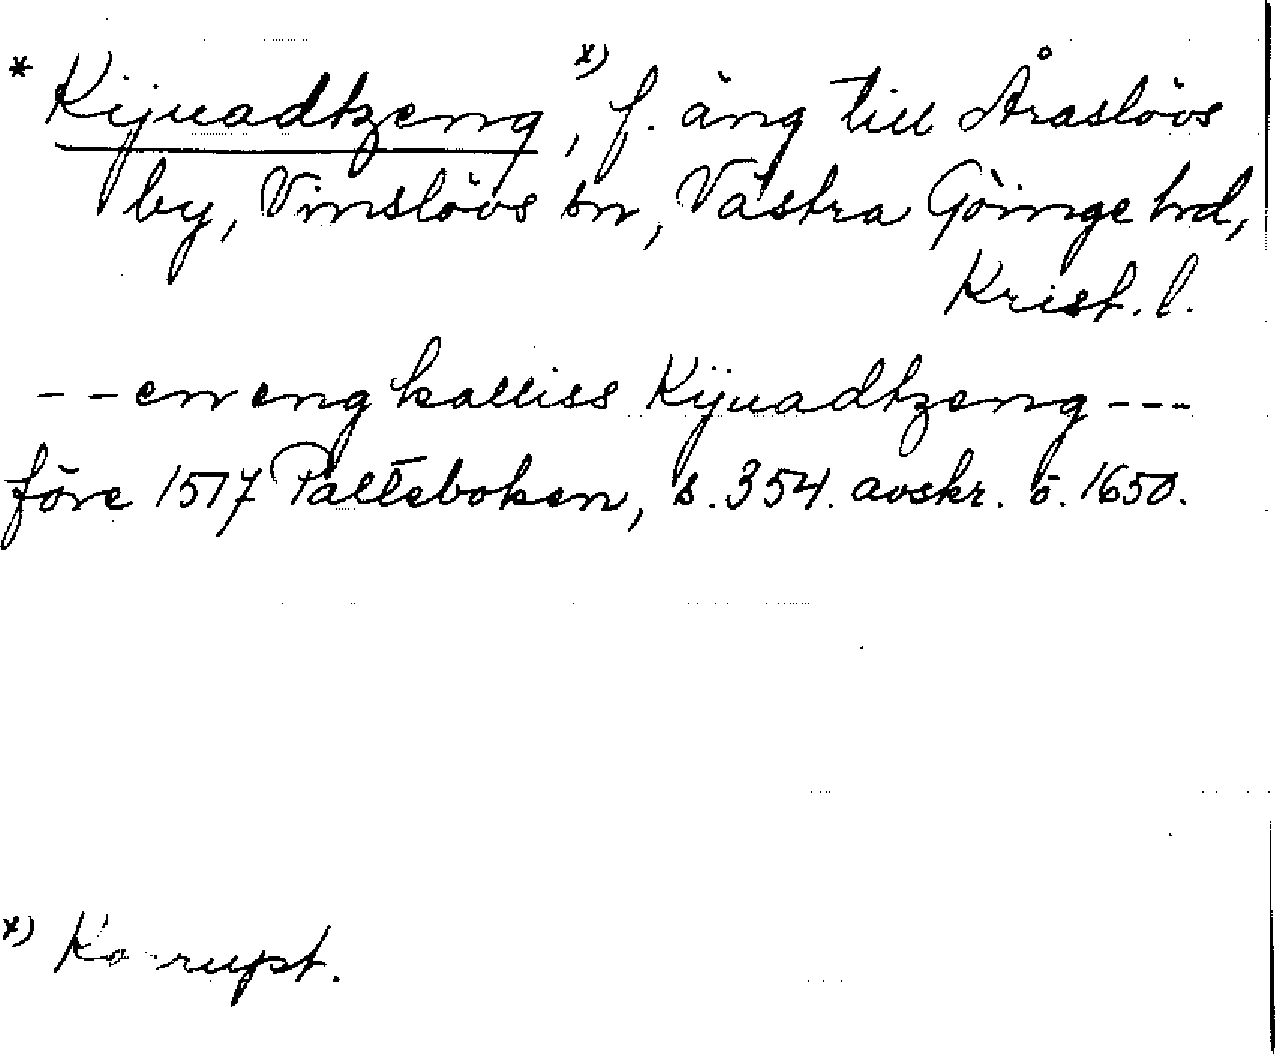 * Kijuadtzeng x), f. äng till Åraslövs
by, Vinslövs sn, Västra Göinge hrd,
Krist. l.
- - en eng kalliss Kijuadtzeng - - -
före 1517 Palteboken, s. 354. avskr. o. 1650.
x) Korrupt.